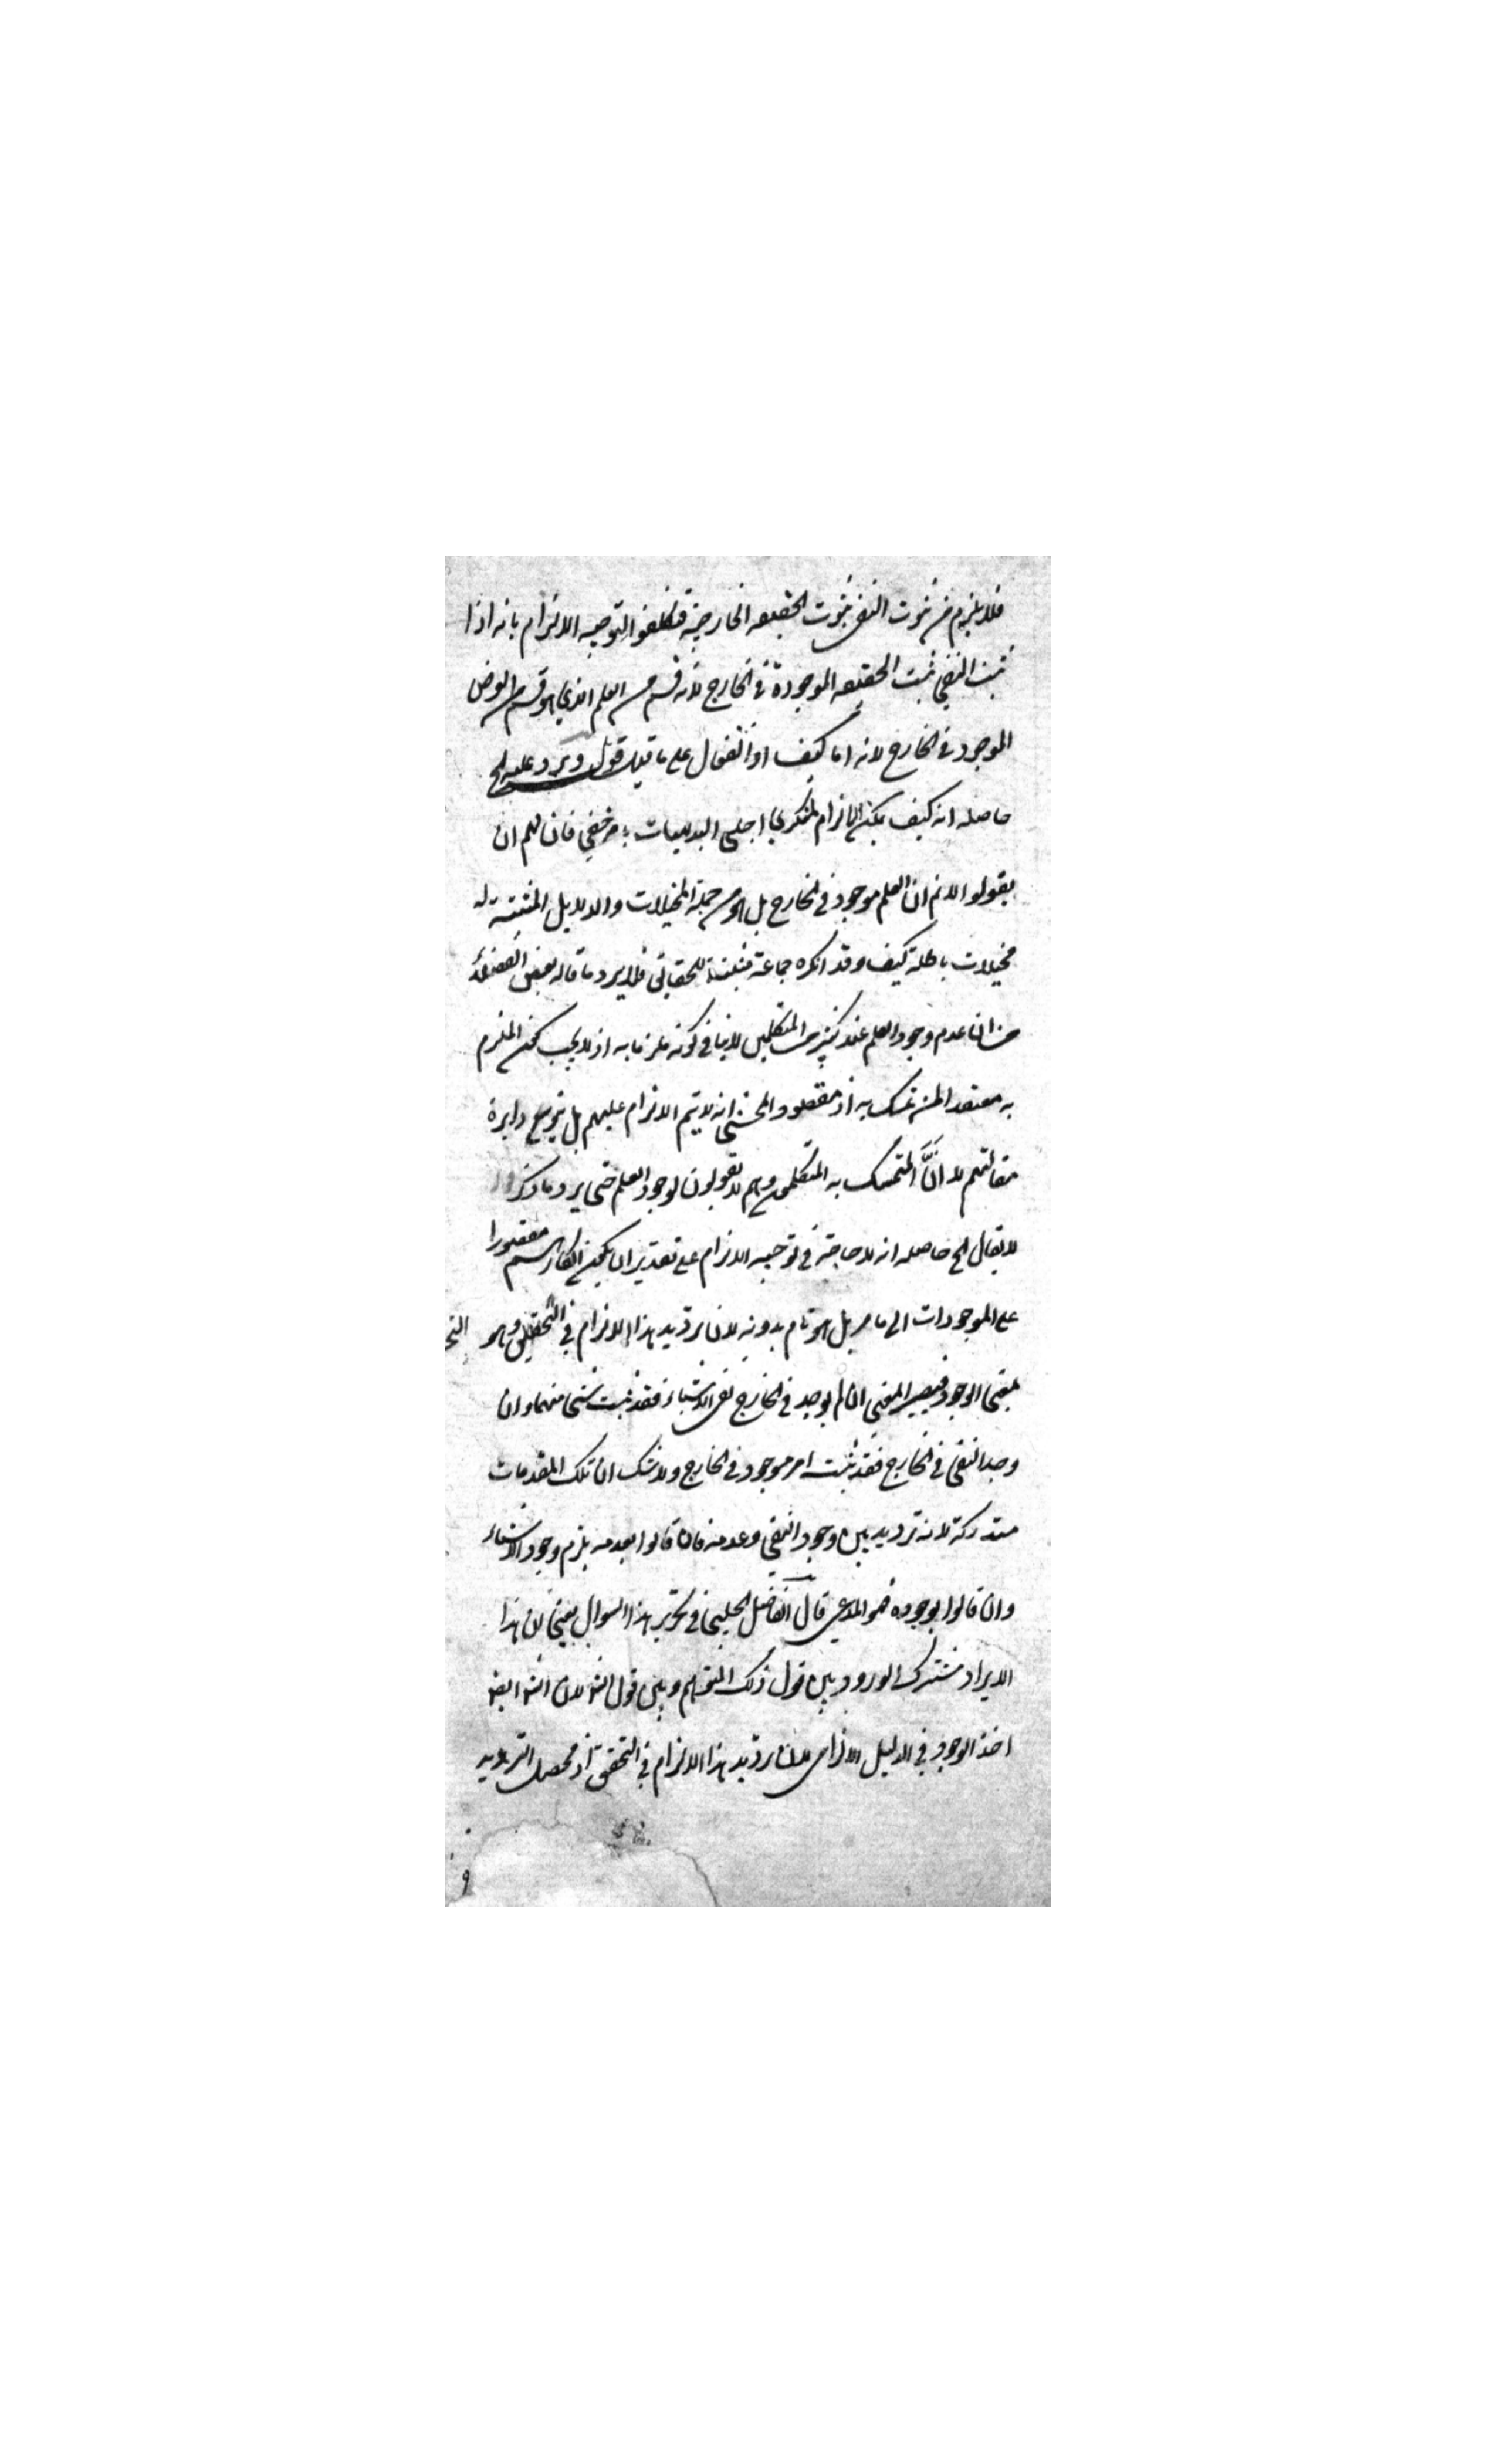 فلا يلزم من ثبوت النفي ثبوت الحقيقه الخارجية فتكلفوا لتوجيه الالزام بانه اذا
ثبت النفي ثبت الحقيقه الموجودة في الخارج لانه قسم من العلم الذي هو قسم من العرض
الموجود في الخارج لانه اما كيف او انفعال على ما قيل قوله ويرد عليه الخ
حاصله انه كيف يمكن الالزام لمنكري اجلى البديهيات بامر خفي فان لهم ان
يقولوا لانم ان العلم موجود في الخارج بل هو من جملة المخيلات والدلايل المثبتة له
مخيلات باطلة كيف وقد انكره جماعة مثبتة للحقائق فلا يرد ما قاله بعض الفضلاء
من ان عدم وجود العلم عند كثير من المتكلمين لاينافي كونه ملزما به اذ لا يجب كون الملزم
به معتقد المن تمسك به اذ مقصود المحشي انه لا يتم الالزام عليهم بل يتوسع دايرة
مقالتهم لا ان المتمسك به المتكلمون وهم لا يقولون لوجود العلم حتى يرد ما ذكر
لا يقال الخ حاصله انه لا حاجة في توجيه الالزام على تقدير ان يكون انكارهم مقصورا
على الموجودات الى ما مر بل هو تام بدونه لان ترديد هذا الالزام في التحقيق وهو
بمعنى الوجود فيصير المعنى ان لم يوجد في الخارج نفي الاشياء فقد ثبت شئ منهما وان
وجد النفي في الخارج فقد ثبت امر موجود في الخارج ولا شك ان تلك المقدمات
مستدركة لانه ترديد بين وجود النفي وعدمه فان قالوا بعدمه يلزم وجود الاشياء
وان قالوا بوجوده فهو المدعى قال الفاضل الجلبي في تحرير هذا السوال يعني ان هذا
الايراد مشترك الورود بين قول ذلك المتوهم وبين قول الش لان الش ايض
اخذ الوجود في الدليل الالزامي لان ترديد هذا الالزام في التحقق اذ محصل الترديد